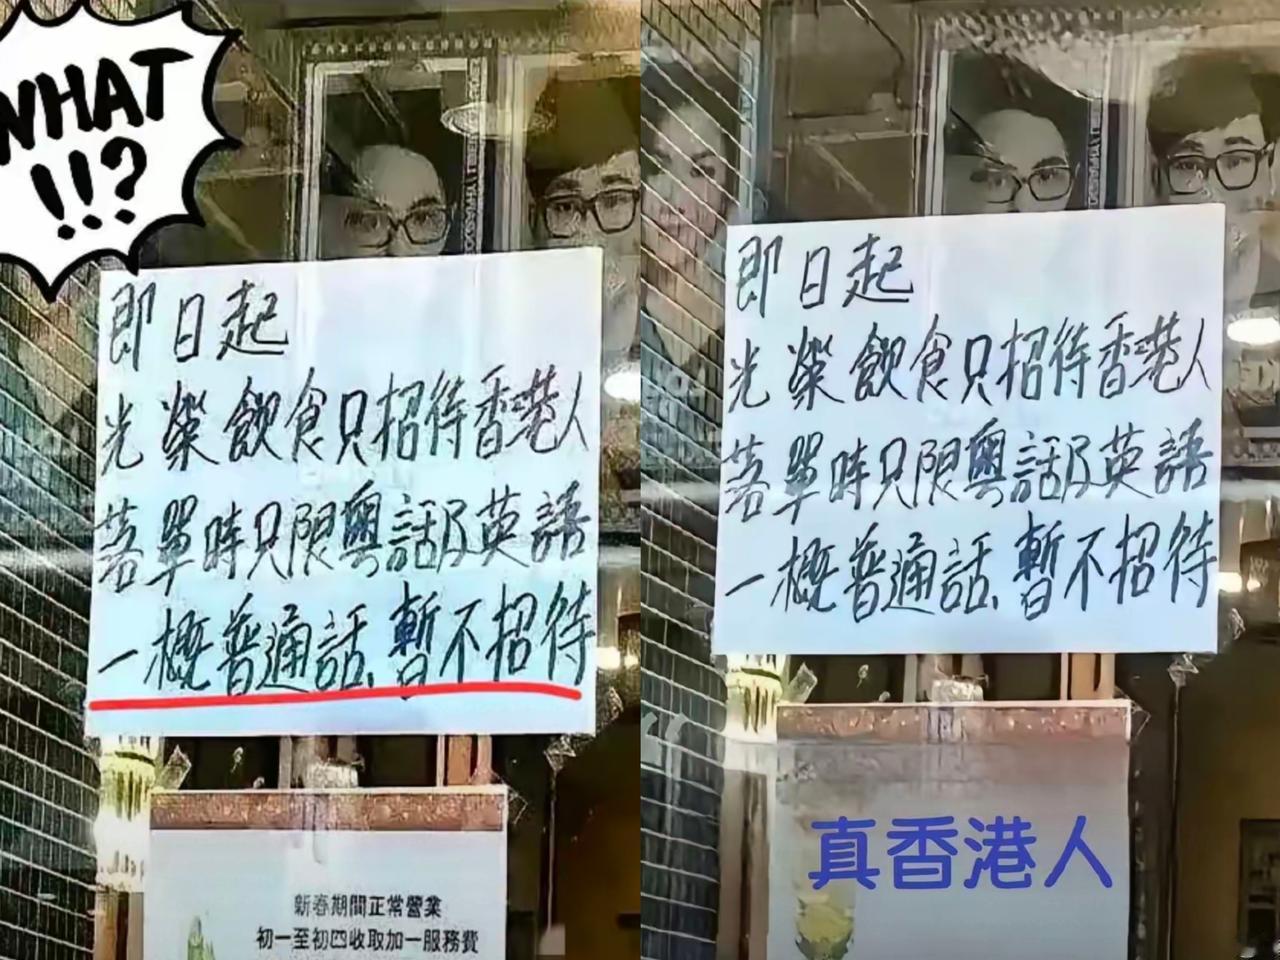 WHAT
!!?
即日起
光榮飲食只招待香港人
落單時只限粵話及英語
一概普通話、暫不招待
新春期間正常營業
初一至初四收取加一服務費
即日起
光榮飲食只招待香港人
落單時只限粵話及英語
一概普通話、暫不招待
真香港人